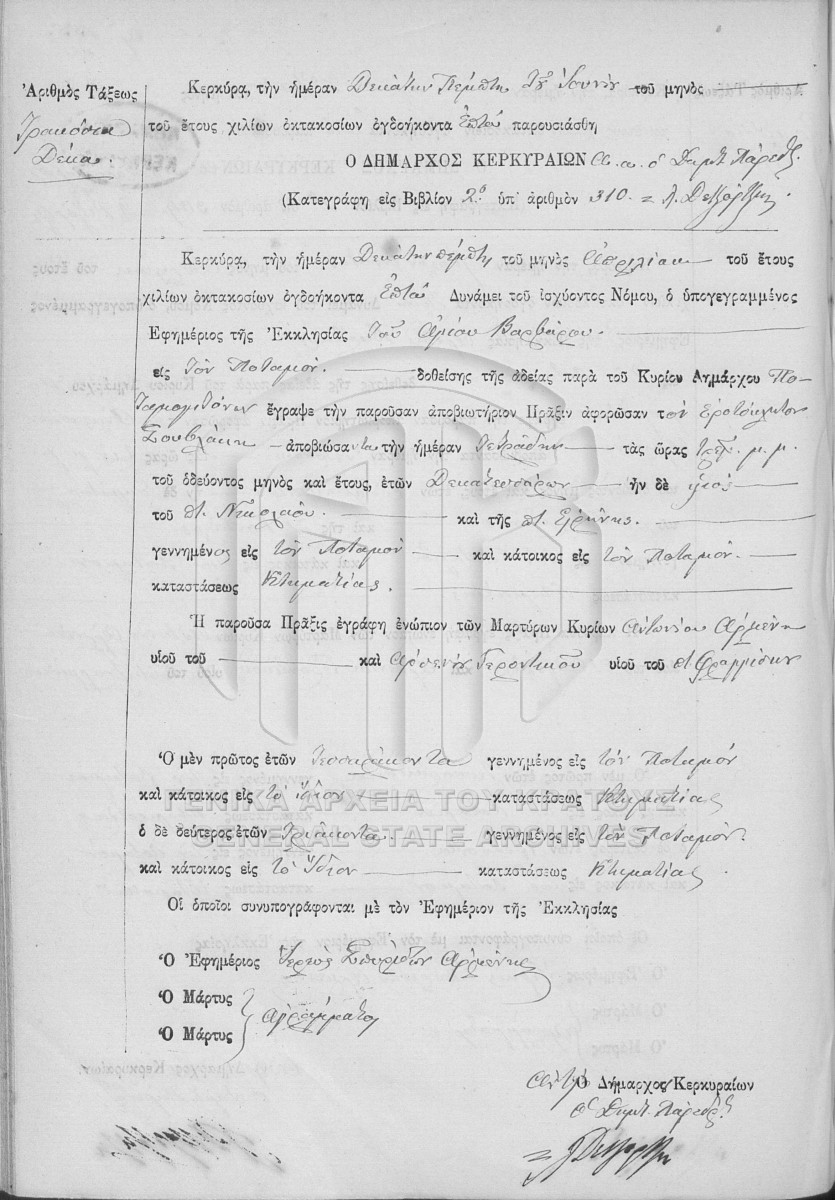 Ἀριθμὸς Τάξεως
Τρακόσια
Δέκα.
Κερκύρα, τὴν ἡμέραν Δεκάτην Πέμπτη τοῦ Ἰουνίου τοῦ μηνὸς
τοῦ ἔτους χιλίων ὀκτακοσίων ὀγδοήκοντα Ἑπτά παρουσιάσθη
Ὁ ΔΗΜΑΡΧΟΣ ΚΕΡΚΥΡΑΙΩΝ ὁ Δημτ. Πάρεδρ.
(Κατεγράφη εἰς Βιβλίον 2ο ὑπ' ἀριθμὸν 310.
Κερκύρα, τὴν ἡμέραν Δεκάτην πέμπτη τοῦ μηνὸς Ἀπριλίου τοῦ ἔτους
χιλίων ὀκτακοσίων ὀγδοήκοντα Ἑπτά Δυνάμει τοῦ ἰσχύοντος Νόμου, ὁ ὑπογεγραμμένος
Ἐφημέριος τῆς Ἐκκλησίας τοῦ Ἁγίου Βαρβάρου.
εἰς τὸν Ποταμόν. δοθείσης τῆς ἀδείας παρὰ τοῦ Κυρίου Δημάρχου Πο-
ταμογιτόνων ἔγραψε τὴν παροῦσαν ἀποβιωτήριον Πρᾶξιν ἀφορῶσαν τὸν Ἐροτόκλητον
Σουβλάκη ἀποβιώσαντα τὴν ἡμέραν Τετράδην τὰς ὥρας μ. μ.
τοῦ ὁδεύοντος μηνὸς καὶ ἔτους, ἐτῶν Δεκατεσσάρων ἦν δὲ υἱος
τοῦ π. Νικολάου. καὶ τῆς π. Εἰρήνης.
γεννημένος εἰς τὸν Ποταμὸν καὶ κάτοικος εἰς τὸν Ποταμὸν.
καταστάσεως Κτηματίας.
Ἡ παροῦσα Πρᾶξις ἐγράφη ἐνώπιον τῶν Μαρτύρων Κυρίων Ἀντωνίου Ἀρμένη
υἱοῦ τοῦ καὶ Ἀρσενίου Γεροντικοῦ υἱοῦ τοῦ π Φραγγίσκου
Ὁ μὲν πρῶτος ἐτῶν Τεσσαράκοντα γεννημένος εἰς τὸν Ποταμὸν
καὶ κάτοικος εἰς τὸ ἴδιον καταστάσεως Κτηματίας
ὁ δὲ δεύτερος ἐτῶν Τριάκοντα γεννημένος εἰς τὸν Ποταμὸν.
καὶ κάτοικος εἰς τὸ ἴδιον καταστάσεως Κτηματίας
Οἱ ὁποῖοι συνυπογράφονται μὲ τὸν Ἐφημέριον τῆς Ἐκκλησίας
Ὁ Ἐφημέριος Ἱερεὺς Σπυρίδων Ἀρμένης
Ὁ Μάρτυς
Ὁ Μάρτυς ἀγράμματοι
Ὁ Δήμαρχος Κερκυραίων
ὁ Δημτ. Πάρεδρ.
ΓΕΝΙΚΑ ΑΡΧΕΙΑ ΤΟΥ ΚΡΑΤΟΥΣ
GENERAL STATE ARCHIVES